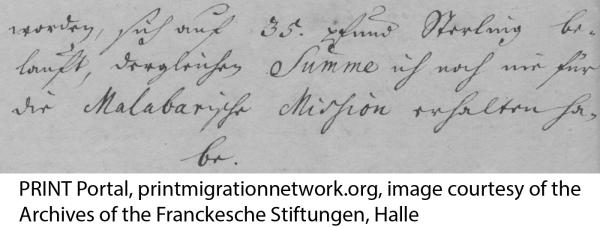 worden, sich auf 35. Pfund Sterling be-
lauft, dergleichen Summe ich noch nie für
die Malabarische Mission erhalten ha-
be.
PRINT Portal, printmigrationnetwork.org, image courtesy of the
Archives of the Franckesche Stiftungen, Halle